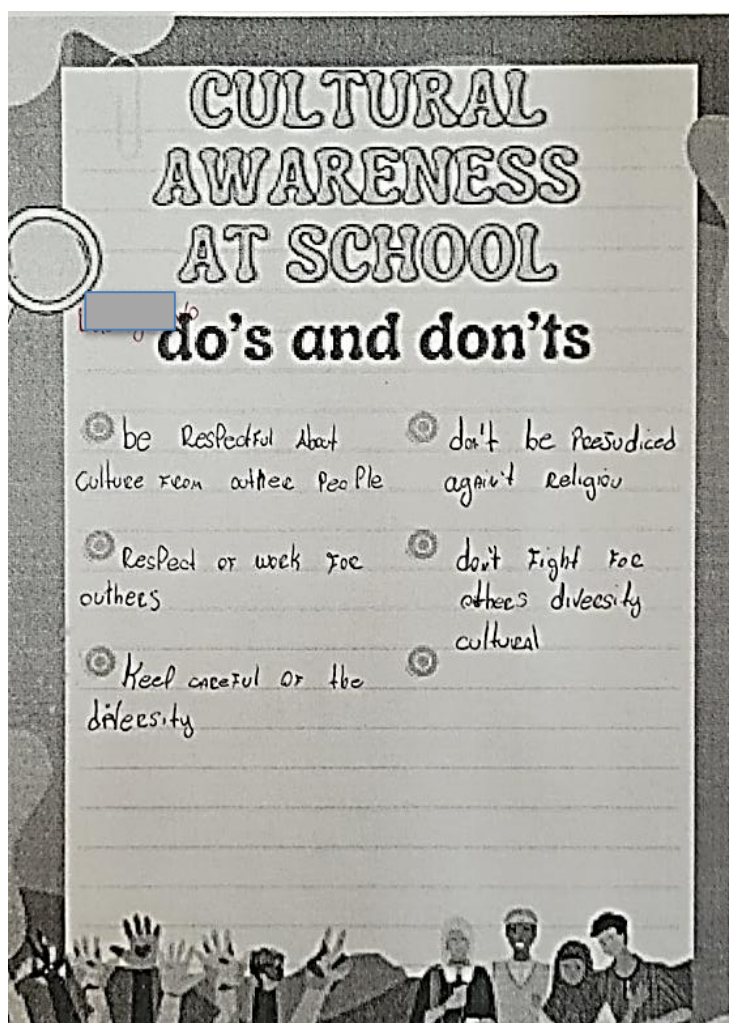 CULTURAL
AWARENESS
AT SCHOOL
do's and don'ts
be Respectful About
culture from outher People
Respect of work for
outhers
Keep careful of the
diversity
don't be Prejudiced
again't Religion
don't fight for
others diversity
cultural